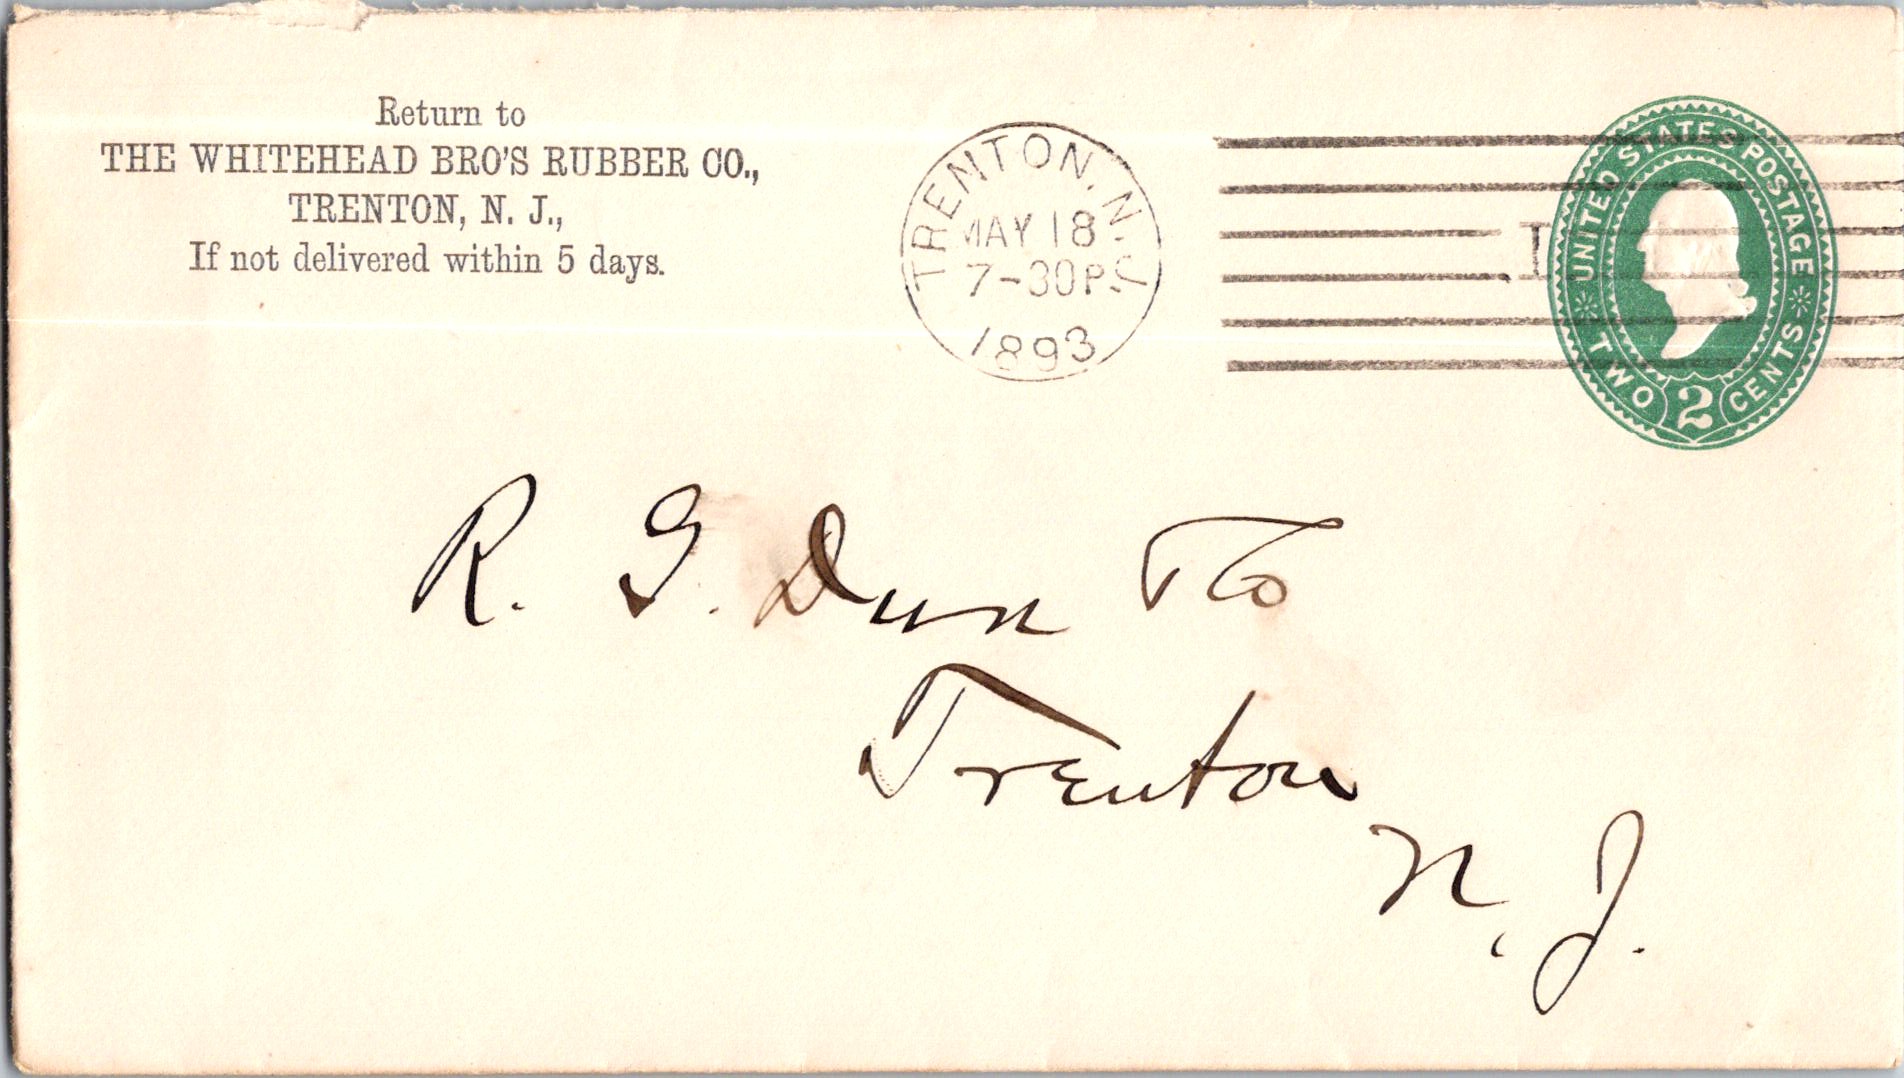 Return to
THE WHITEHEAD BRO'S RUBBER CO.,
TRENTON, N. J.,
If not delivered within 5 days.
TRENTON, N.J.
MAY 18
7-30P.
1893
I
UNITED STATES POSTAGE
TWO 2 CENTS
R. G. Dun & Co
Trenton
N. J.